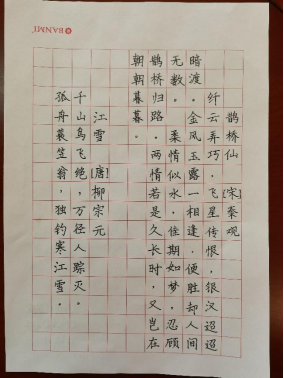 BANMI
鹊桥仙 [宋]秦观
纤云弄巧。飞星传恨，银汉迢迢
暗渡。金风玉露一相逢。便胜却人间
无数。 柔情似水。佳期如梦。忍顾
鹊桥归路。两情若是久长时，又岂在
朝朝暮暮。
江雪 [唐]柳宗元
千山鸟飞绝，万径人踪灭。
孤舟蓑笠翁，独钓寒江雪。